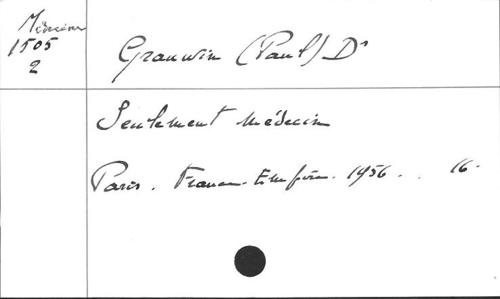 Médecine
1505
2
Grauwin (Paul) Dr
Seulement médecin
Paris. France-Empire. 1956. . 16